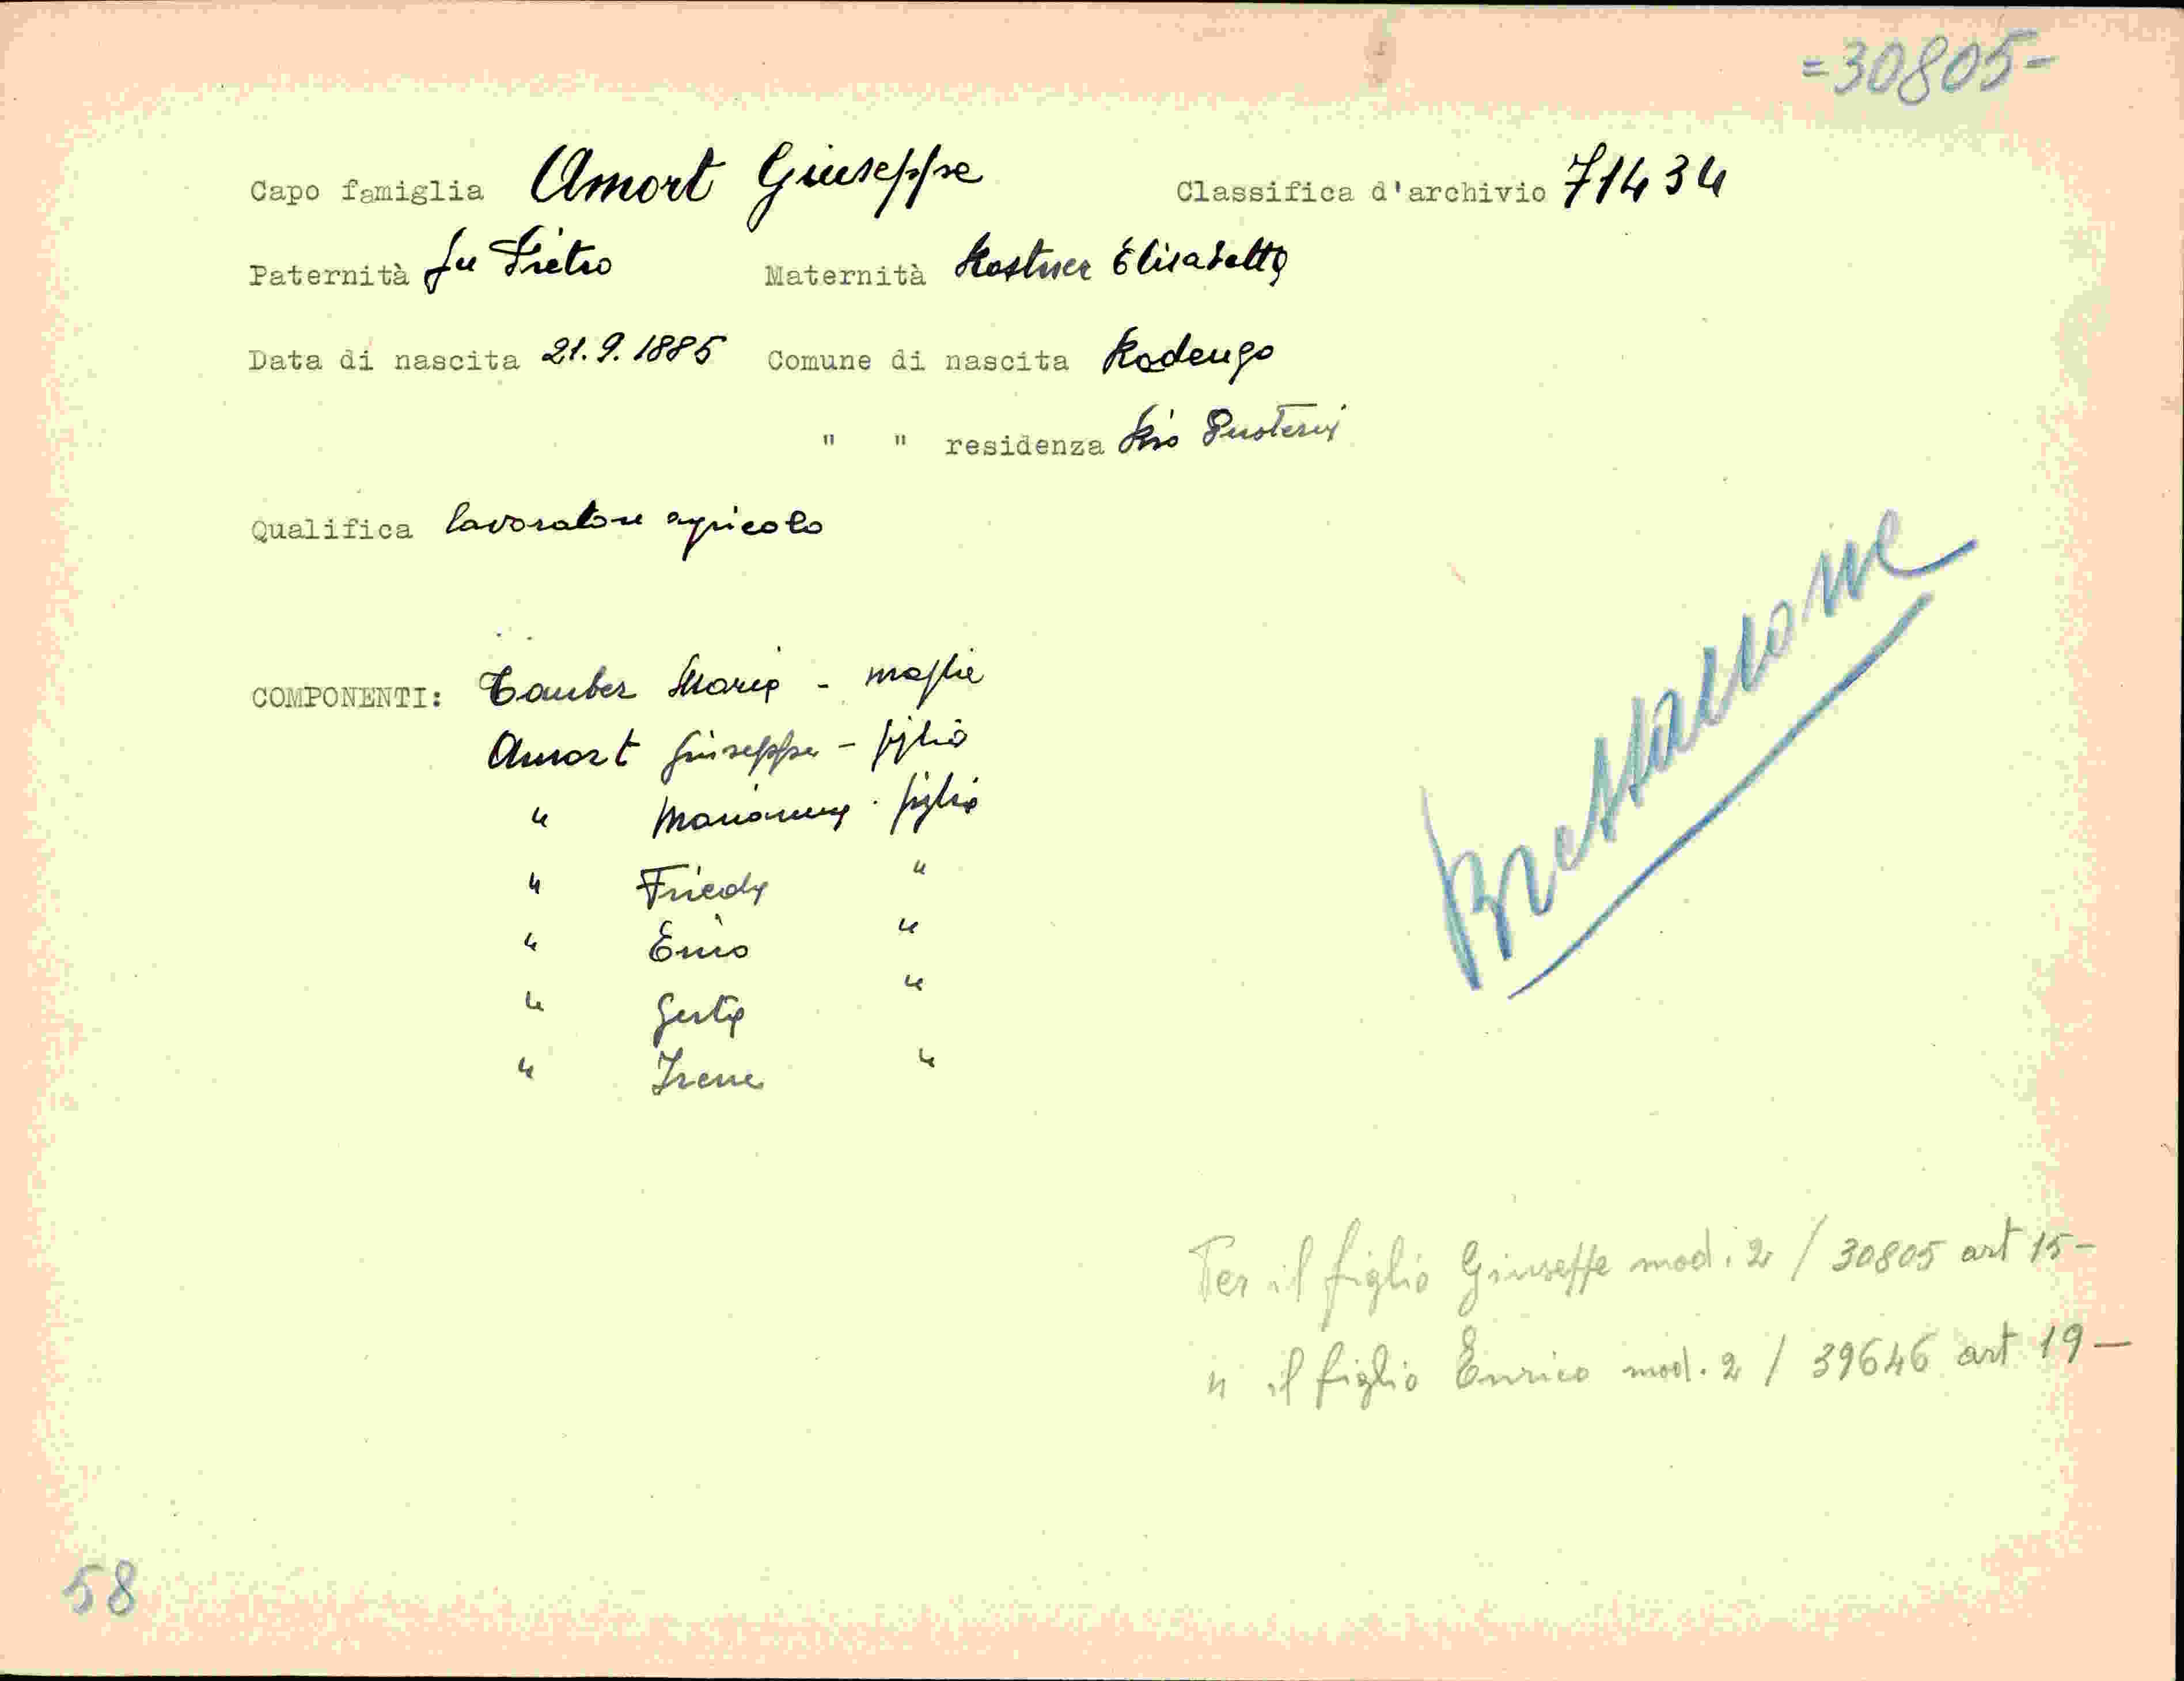 =30805-
Capo famiglia Amort Giuseppe Classifica d'archivio 71434
Paternità fu Pietro Maternità Kostner Elisabetta
Data di nascita 21.9.1885 Comune di nascita Rodengo
" " residenza Rio Pusteria
Qualifica lavoratore agricolo
COMPONENTI: Tauber Maria - moglie
Amort Giuseppe - figlio
" Marianna - figlia
" Frieda "
" "
" Gerta "
" Irene "
Bressanone
Per il figlio Giuseppe mod. 2 / 30805 art 15-
" il figlio Enrico mod. 2 / 39646 art 19-
58